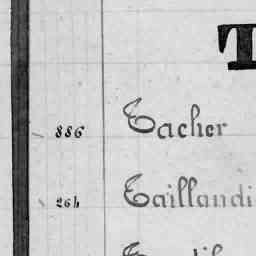 T
886 Tacher
264 Taillandi